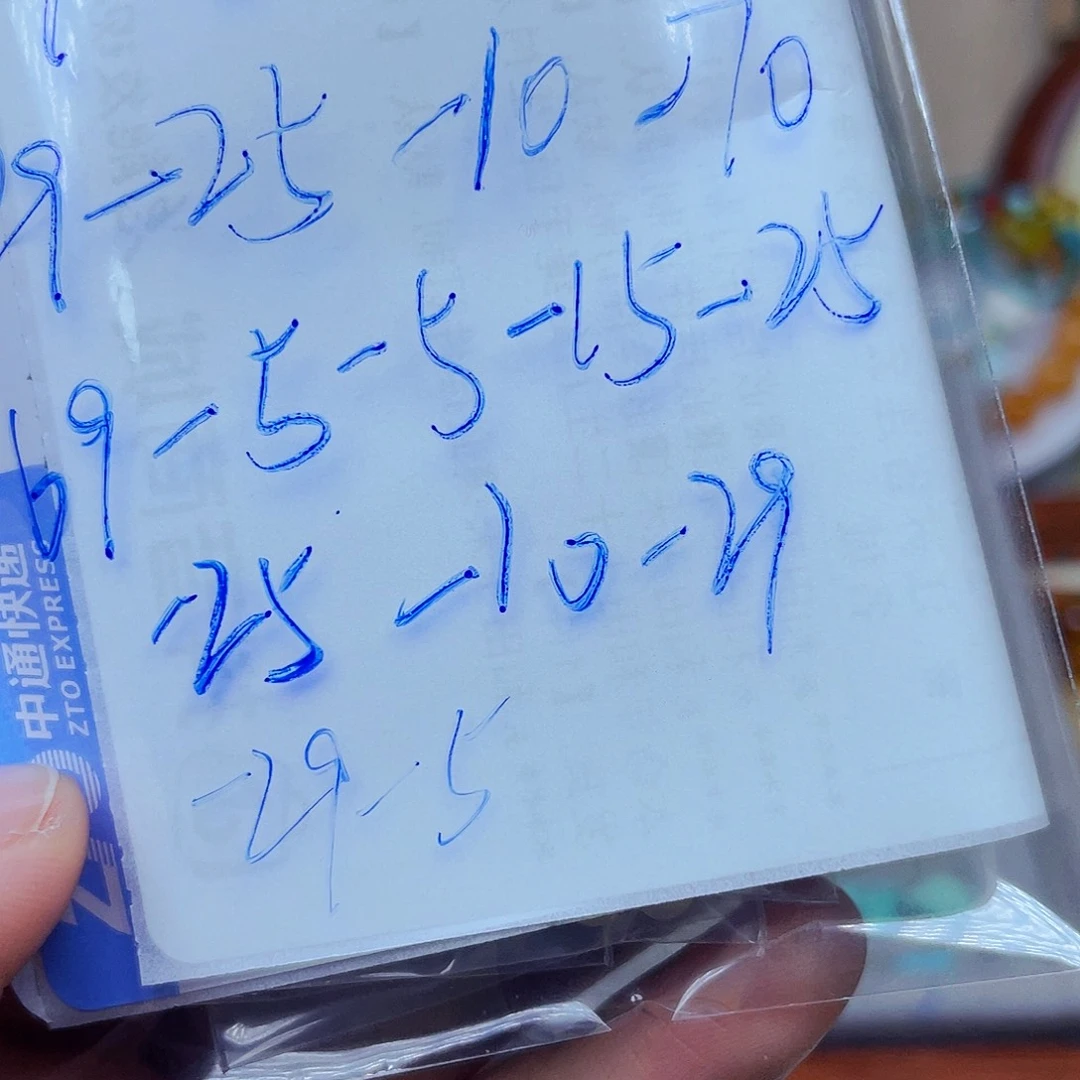 9-25-10-70
69-5-5-15-25
-25-10-29
-29-5
中通快递
ZTO EXPRESS